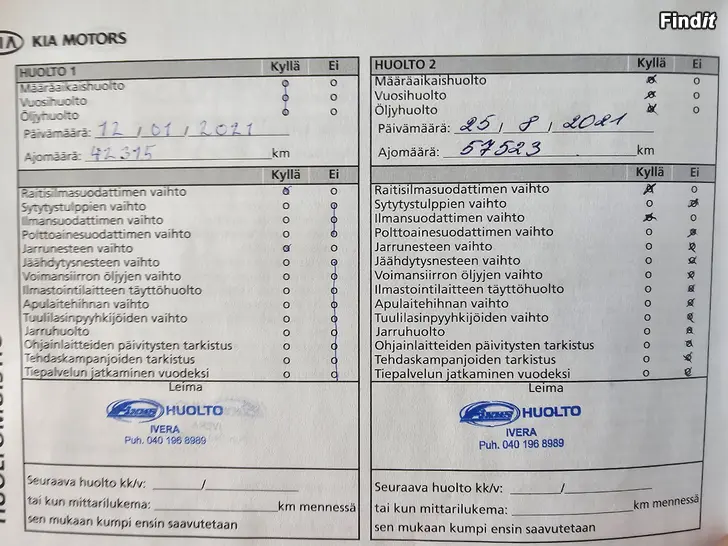 Findit
KIA KIA MOTORS
HUOLTO 1 Kyllä Ei
Määräaikaishuolto o o
Vuosihuolto o o
Öljyhuolto o o
Päivämäärä: 12 / 01 / 2021
Ajomäärä: 42315 km
Kyllä Ei
Raitisilmasuodattimen vaihto o o
Sytytystulppien vaihto o o
Ilmansuodattimen vaihto o o
Polttoainesuodattimen vaihto o o
Jarrunesteen vaihto o o
Jäähdytysnesteen vaihto o o
Voimansiirron öljyjen vaihto o o
Ilmastointilaitteen täyttöhuolto o o
Apulaitehihnan vaihto o o
Tuulilasinpyyhkijöiden vaihto o o
Jarruhuolto o o
Ohjainlaitteiden päivitysten tarkistus o o
Tehdaskampanjoiden tarkistus o o
Tiepalvelun jatkaminen vuodeksi o o
Leima
HUOLTO
IVERA
Puh. 040 196 8989
Seuraava huolto kk/v: /
tai kun mittarilukema: km mennessä
sen mukaan kumpi ensin saavutetaan
HUOLTO 2 Kyllä Ei
Määräaikaishuolto o o
Vuosihuolto o o
Öljyhuolto o o
Päivämäärä: 25 / 8 / 2021
Ajomäärä: 57523 km
Kyllä Ei
Raitisilmasuodattimen vaihto o o
Sytytystulppien vaihto o o
Ilmansuodattimen vaihto o o
Polttoainesuodattimen vaihto o o
Jarrunesteen vaihto o o
Jäähdytysnesteen vaihto o o
Voimansiirron öljyjen vaihto o o
Ilmastointilaitteen täyttöhuolto o o
Apulaitehihnan vaihto o o
Tuulilasinpyyhkijöiden vaihto o o
Jarruhuolto o o
Ohjainlaitteiden päivitysten tarkistus o o
Tehdaskampanjoiden tarkistus o o
Tiepalvelun jatkaminen vuodeksi o o
Leima
HUOLTO
IVERA
Puh. 040 196 8989
Seuraava huolto kk/v: /
tai kun mittarilukema: km mennessä
sen mukaan kumpi ensin saavutetaan